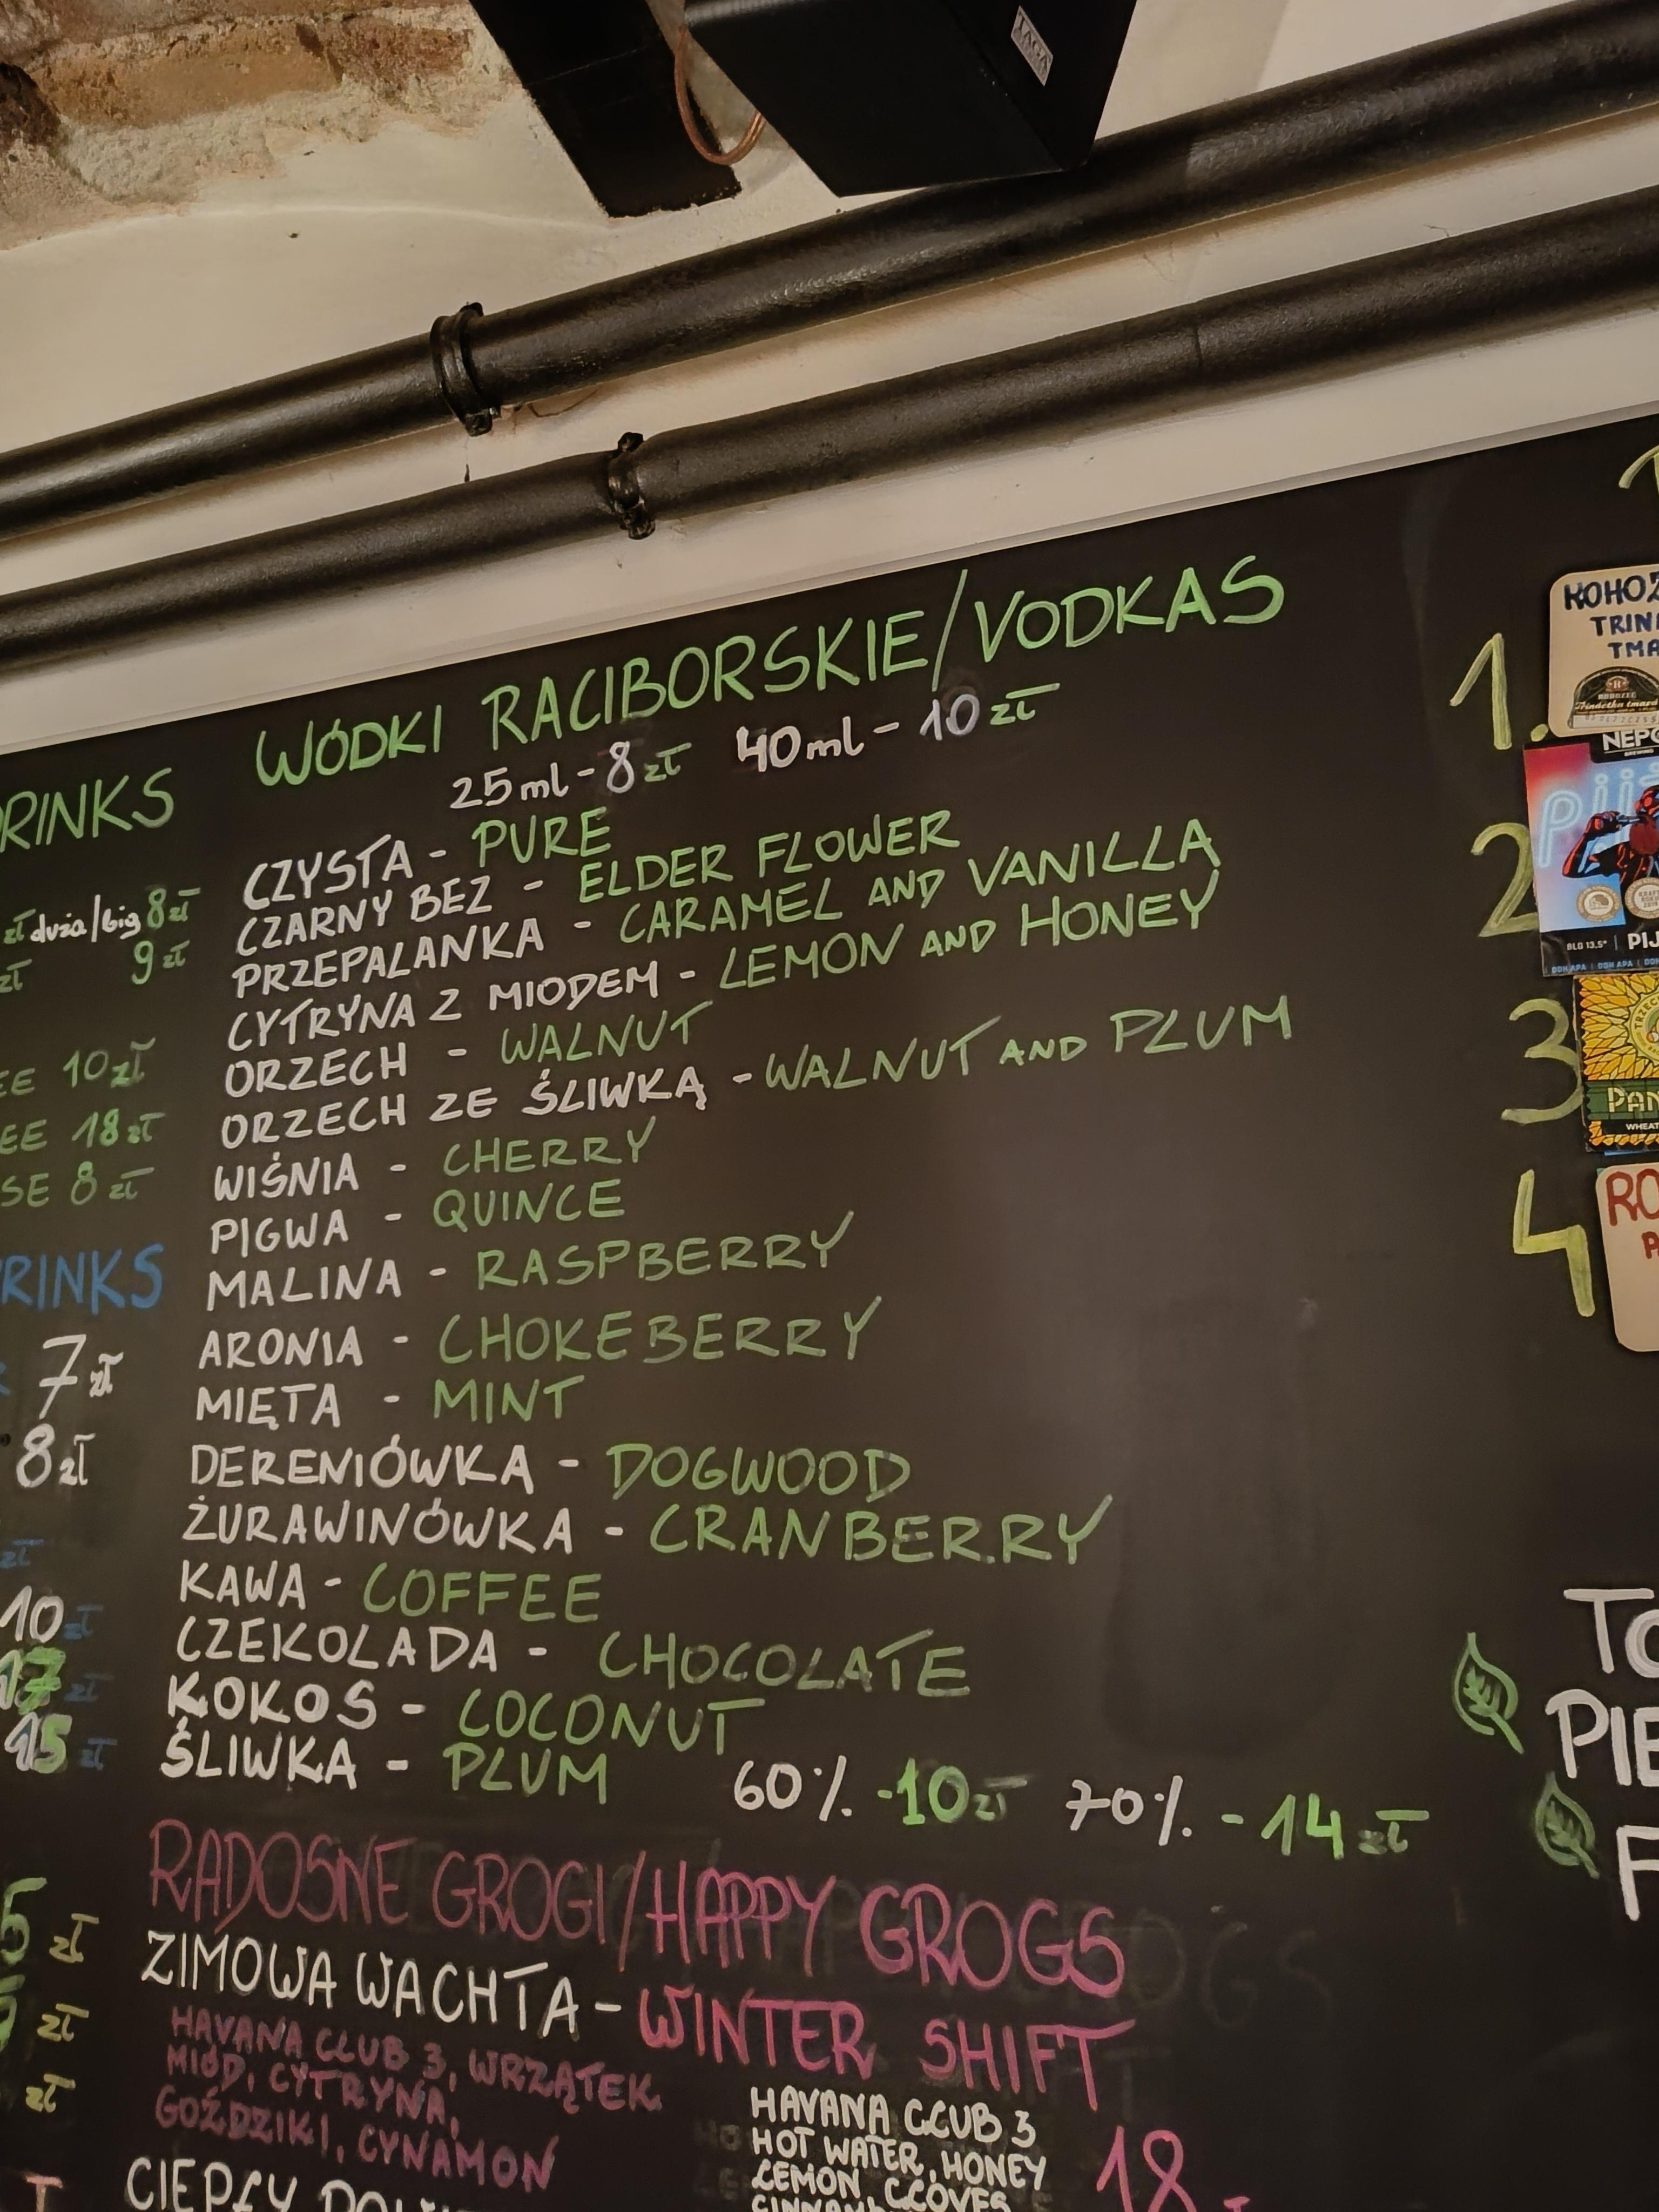 TAGA
WÓDKI RACIBORSKIE/VODKAS
25ml-8zł 40ml-10zł
CZYSTA - PURE
CZARNY BEZ - ELDER FLOWER
PRZEPALANKA - CARAMEL AND VANILLA
CYTRYNA Z MIODEM - LEMON AND HONEY
ORZECH - WALNUT
ORZECH ZE ŚLIWKĄ - WALNUT AND PLUM
WIŚNIA - CHERRY
PIGWA - QUINCE
MALINA - RASPBERRY
ARONIA - CHOKEBERRY
MIĘTA - MINT
DERENIÓWKA - DOGWOOD
ŻURAWINÓWKA - CRANBERRY
KAWA - COFFEE
CZEKOLADA - CHOCOLATE
KOKOS - COCONUT
ŚLIWKA - PLUM 60% -10zł 70% -14zł
RADOSNE GROGI/HAPPY GROGS
ZIMOWA WACHTA - WINTER SHIFT
HAVANA CLUB 3, WRZĄTEK
MIÓD, CYTRYNA,
GOŹDZIKI, CYNAMON
HAVANA CLUB 3
HOT WATER, HONEY
LEMON, CLOVES
18
CIEPŁY
RINKS
zł duża/big 8zł
zł 9zł
EE 10zł
EE 18zł
SE 8zł
RINKS
7zł
8zł
zł
10zł
17zł
15zł
5zł
zł
zł
1.
KOHOZ
TRIN
TMA
2
NEPO
BLG 13,5° | PIJ
DDH APA | DDH APA | DDH
3
PAN
WHEAT
4
RO
TO
PIE
F